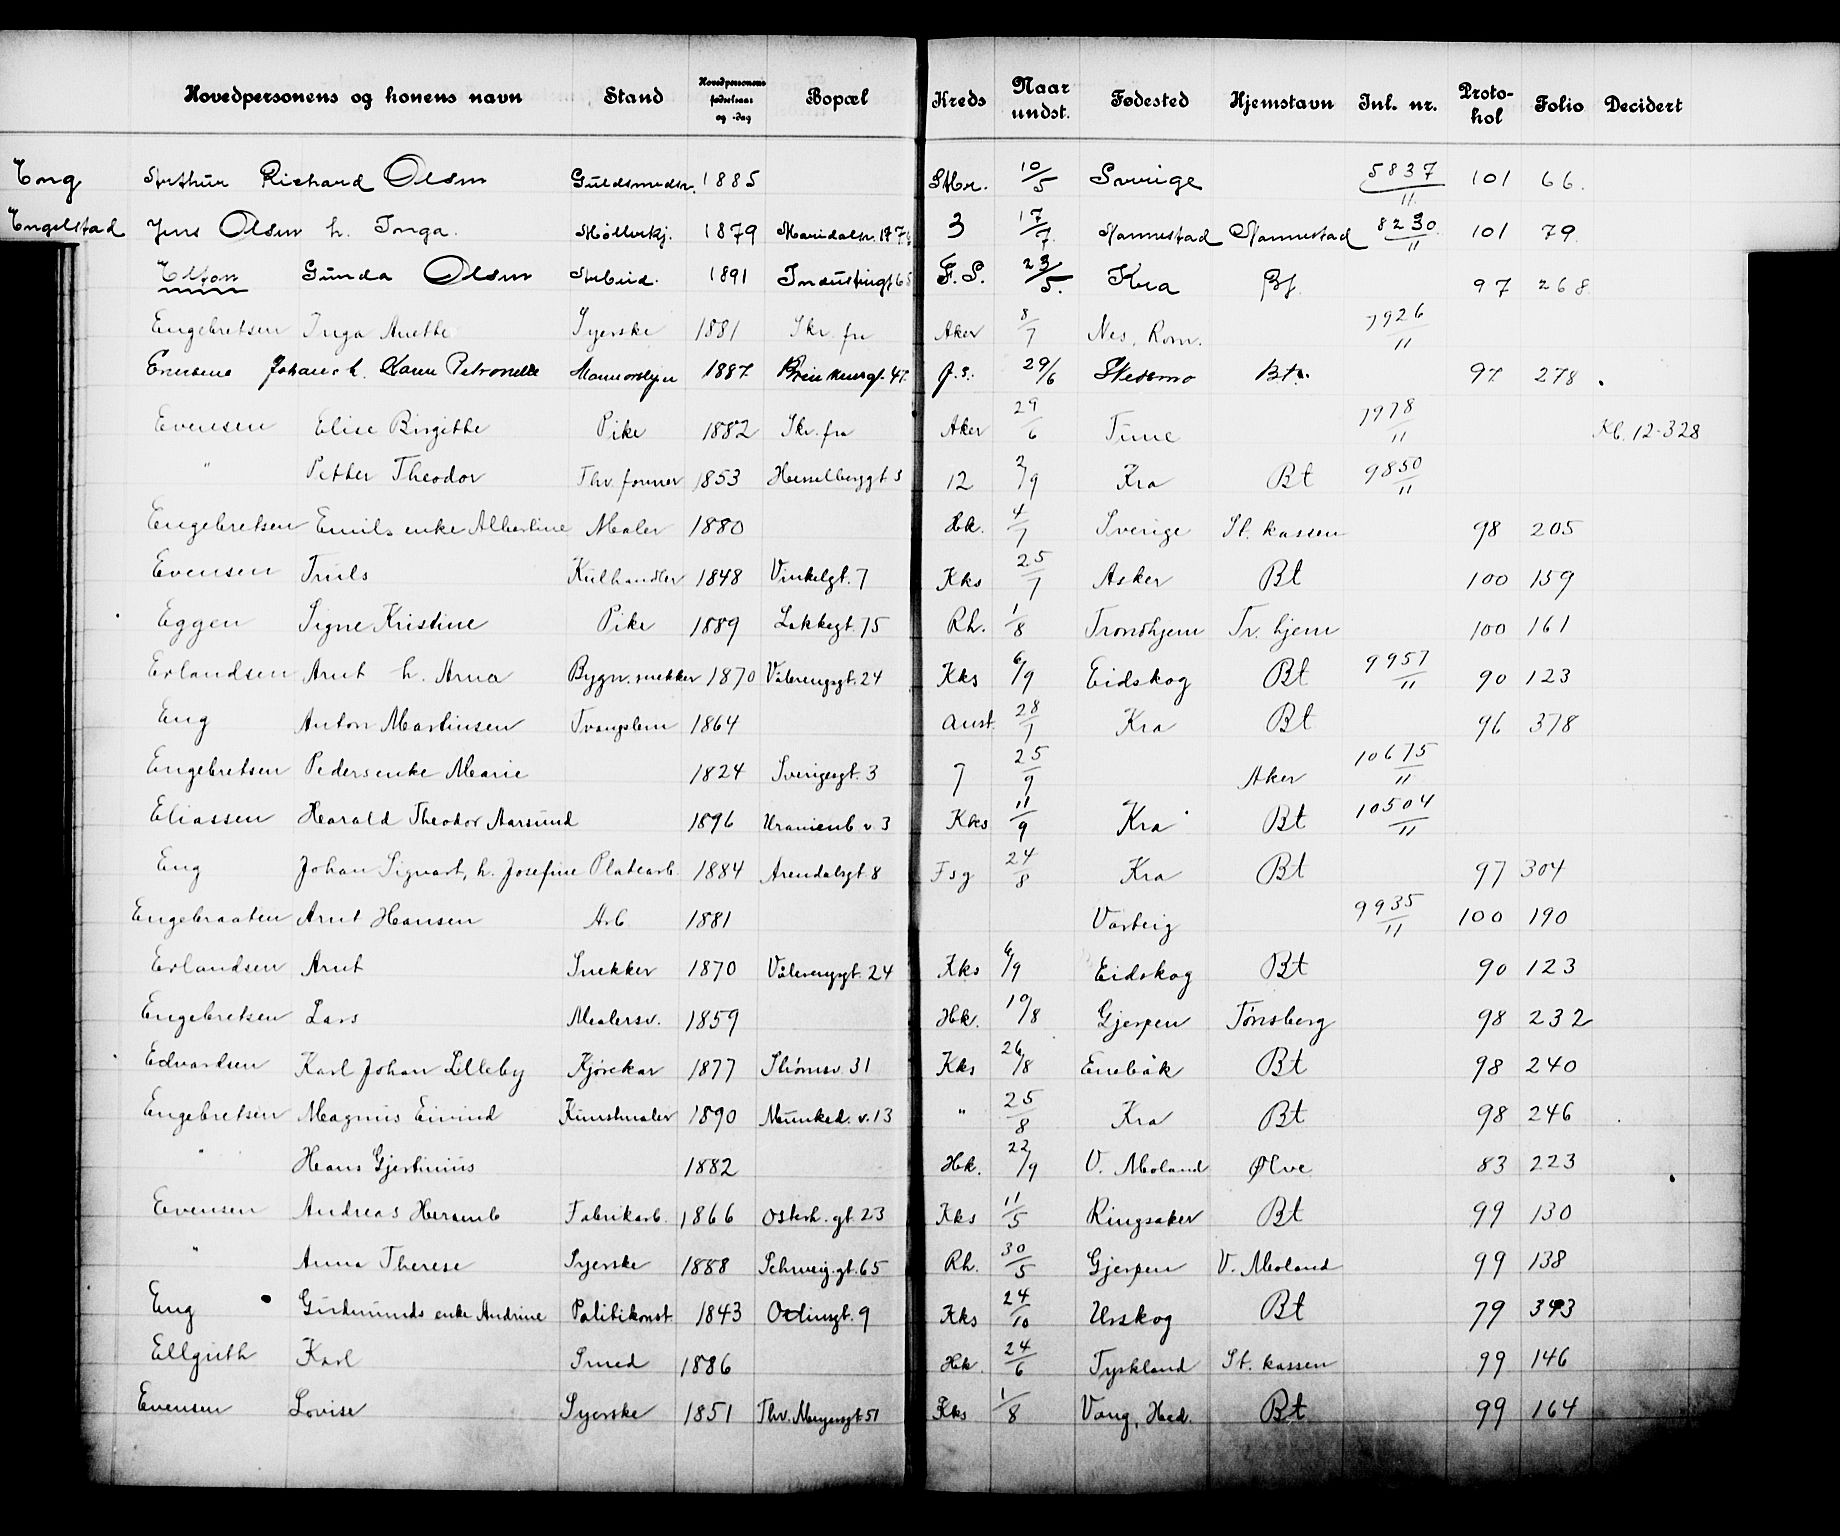 Hovedpersonens og konens navn Stand Hovedpersonens fødselsaar og -dag Bopæl Kreds Naar undst. Fødested Hjemstavn Inl. nr. Proto-hol Folio Decidert
Eng Arthur Richard Olsen Guldsmedsv. 1885 10/5 Sverige 5837/11 101 66.
Engelstad Jens Olsen h. Inga. Møllerkj. 1879 Maridalsv. 3 17/7. Nannestad Nannestad 8230/11 101 79.
Elton Gunda Olsen Arbeid. 1891 Industrigt 65 F.S. 23/5. Kra Bt. 97 268.
Engebretsen Inga Anette Syerske 1881 Skr. fra Aker 8/7 Nes, Rom. 7926/11
Evensens Johans h. Karen Petronelle 1887. 47. f.s. 29/6 Skedsmo Bt. 97 278
Evensen Elise Birgitte Pike 1882 Skr. fra Aker 29/6 Tune 7978/11 Kl. 12-328
" Petter Theodor Thv. former 1853 Hesselberggt 3 12 2/9 Kra Bt 9850/11
Engebretsen Emils enke Albertine Maler 1880 Hk. 4/7 Sverige St. kassen 98 205
Evensen Truls Kulhandler 1848 Vinkelgt. 7 Kks 25/7 Asker Bt 100 159
Eggen Signe Kristine Pike 1889 Lakkegt. 75 Rh. 1/8 Trondhjem Tr. hjem 100 161
Erlandsen Arnt h. Arna Bygn. snekker 1870 Vålerengt. 24 Kks 6/9 Eidskog Bt 9957/11 90 123
Eng Anton Martinsen Tvangslem 1864 Anst. 28/7 Kra Bt 96 378
Engebretsen Peders enke Marie 1824 Sverigesgt. 3 7 25/9 Aker 10675/11
Eliassen Harald Theodor Aarsund 1896 Uranienb v. 3 Kks 11/9 Kra Bt 10504/11
Eng Johan Sigvart, h. Josefine Platearb. 1884 Arendalsgt. 8 Fsg 24/8 Kra Bt 97 304
Engebraaten Arnt Hansen Arb 1881 Varteig 9935/11 100 190
Erlandsen Arnt Snekker 1870 Vålerenggt. 24 Kks 6/9 Eidskog Bt 90 123
Engebretsen Lars Malersv. 1859 Hk. 10/8 Gjerpen Tønsberg 98 232
Edvardsen Karl Johan Lilleby Kjørekar 1877 Strömsv. 31 Kks 26/8 Enebåk Bt 98 240
Engebretsen Magnus Eivind Kunstmaler 1890 Munked. v. 13 " 25/8 Kra Bt 98 246
" Hans Gjertinius 1882 Hk. 22/9 V. Moland Ølve 83 223
Evensen Andreas Heramb Fabrikarb. 1866 Osterh. gt. 23 Kks 11/5 Ringsaker Bt 99 130
" Anna Therese Syerske 1888 Schweig. gt. 65 Rh. 30/5 Gjerpen V. Moland 99 138
Eng Gudmunds enke Andrine Politikonst. 1843 Odinsgt. 9 Kks 24/10 Urskog Bt 79 343
Ellguth Karl Smed 1886 Hk. 24/6 Tyskland St. kassen 99 146
Evensen Lovise Syerske 1851 Thv. Meyersgt 51 Kks 1/8 Vang, Hed. Bt 99 164